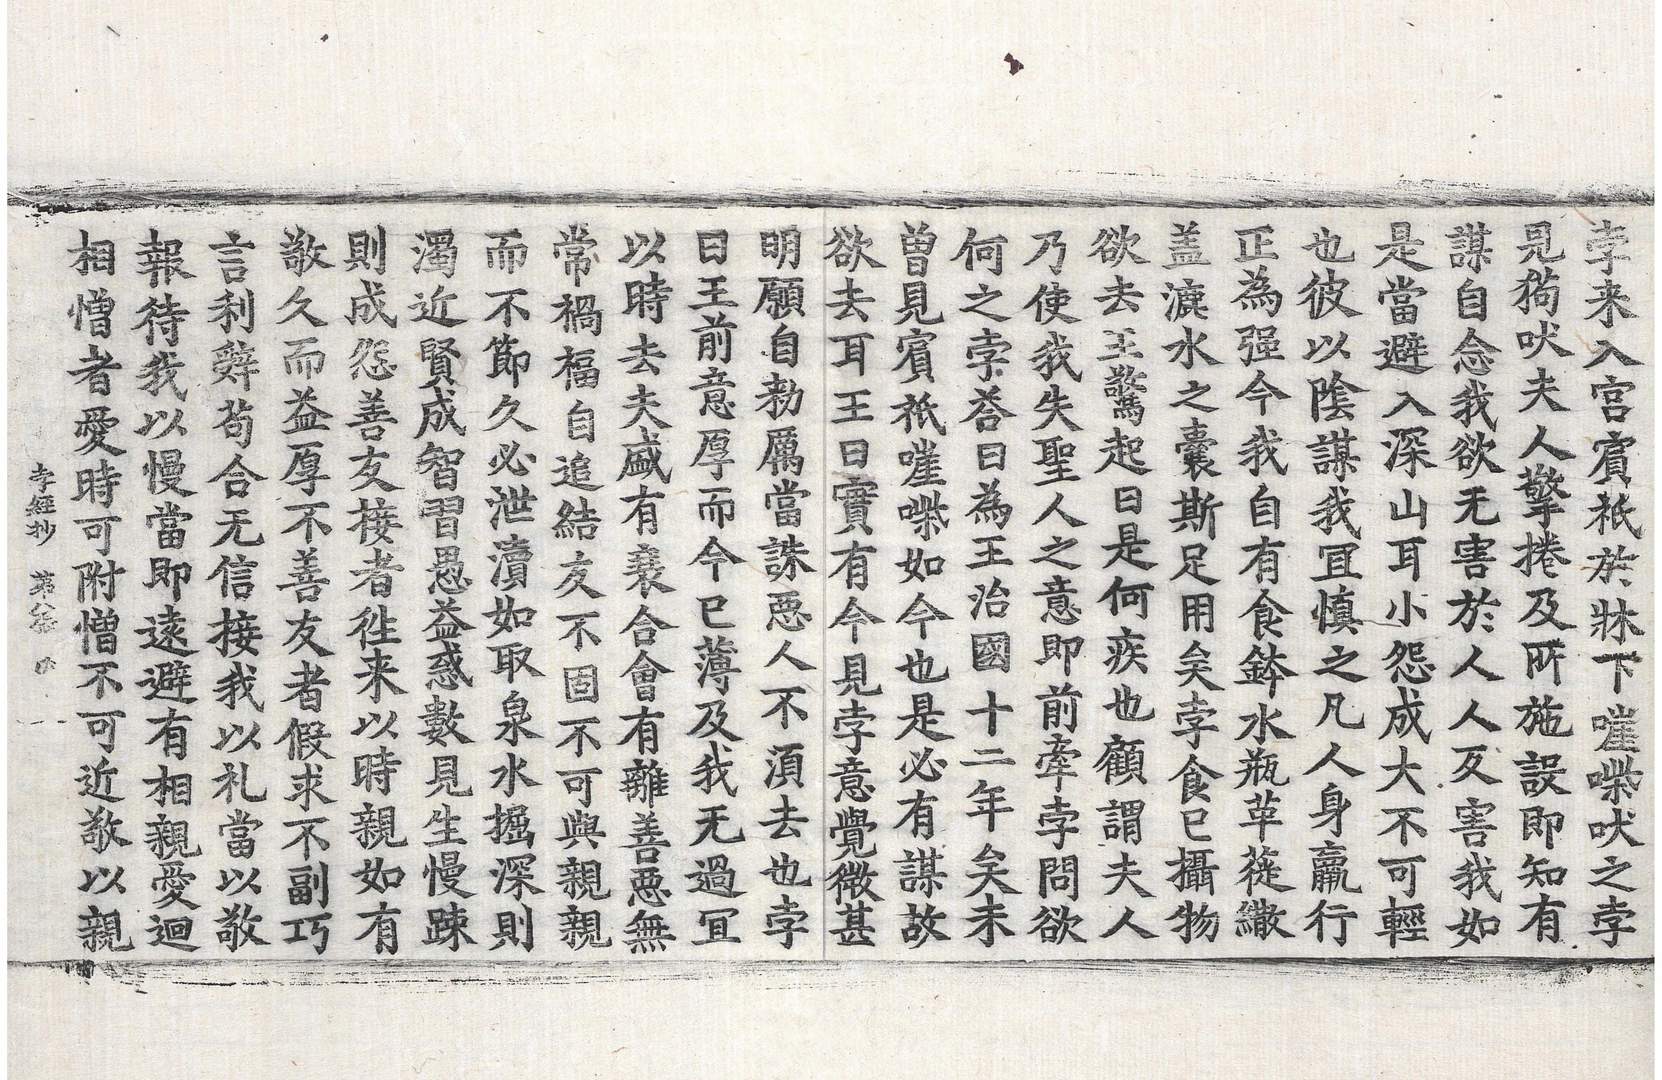 孛来入宮賔祇於牀下嘊喍吠之孛
見猗吠夫人擎捲及所施設即知有
謀自念我欲无害於人人反害我如
是當避入深山耳小怨成大不可輕
也彼以陰謀我冝慎之凡人身羸行
正為强今我自有食鉢水瓶革蓰繖
盖漉水之囊斯足用矣孛食已攝物
欲去王驚起曰是何疾也顧謂夫人
乃使我失聖人之意即前牽孛問欲
何之孛荅曰為王治國十二年矣未
曽見賔祇嘊喍如今也是必有謀故
欲去耳王曰實有今見孛意覺微甚
明願自勑厲當誅惡人不湏去也孛
曰王前意厚而今已薄及我无過冝
以時去夫盛有衰合會有離善惡無
常禍福自追結友不固不可與親親
而不節久必泄瀆如取泉水掘深則
濁近賢成智習愚益惑數見生慢踈
則成怨善友接者徃来以時親如有
敬久而益厚不善友者假求不副巧
言利辭苟合无信接我以礼當以敬
報待我以慢當即遠避有相親愛迴
相憎者愛時可附憎不可近敬以親
孛經抄　第六張